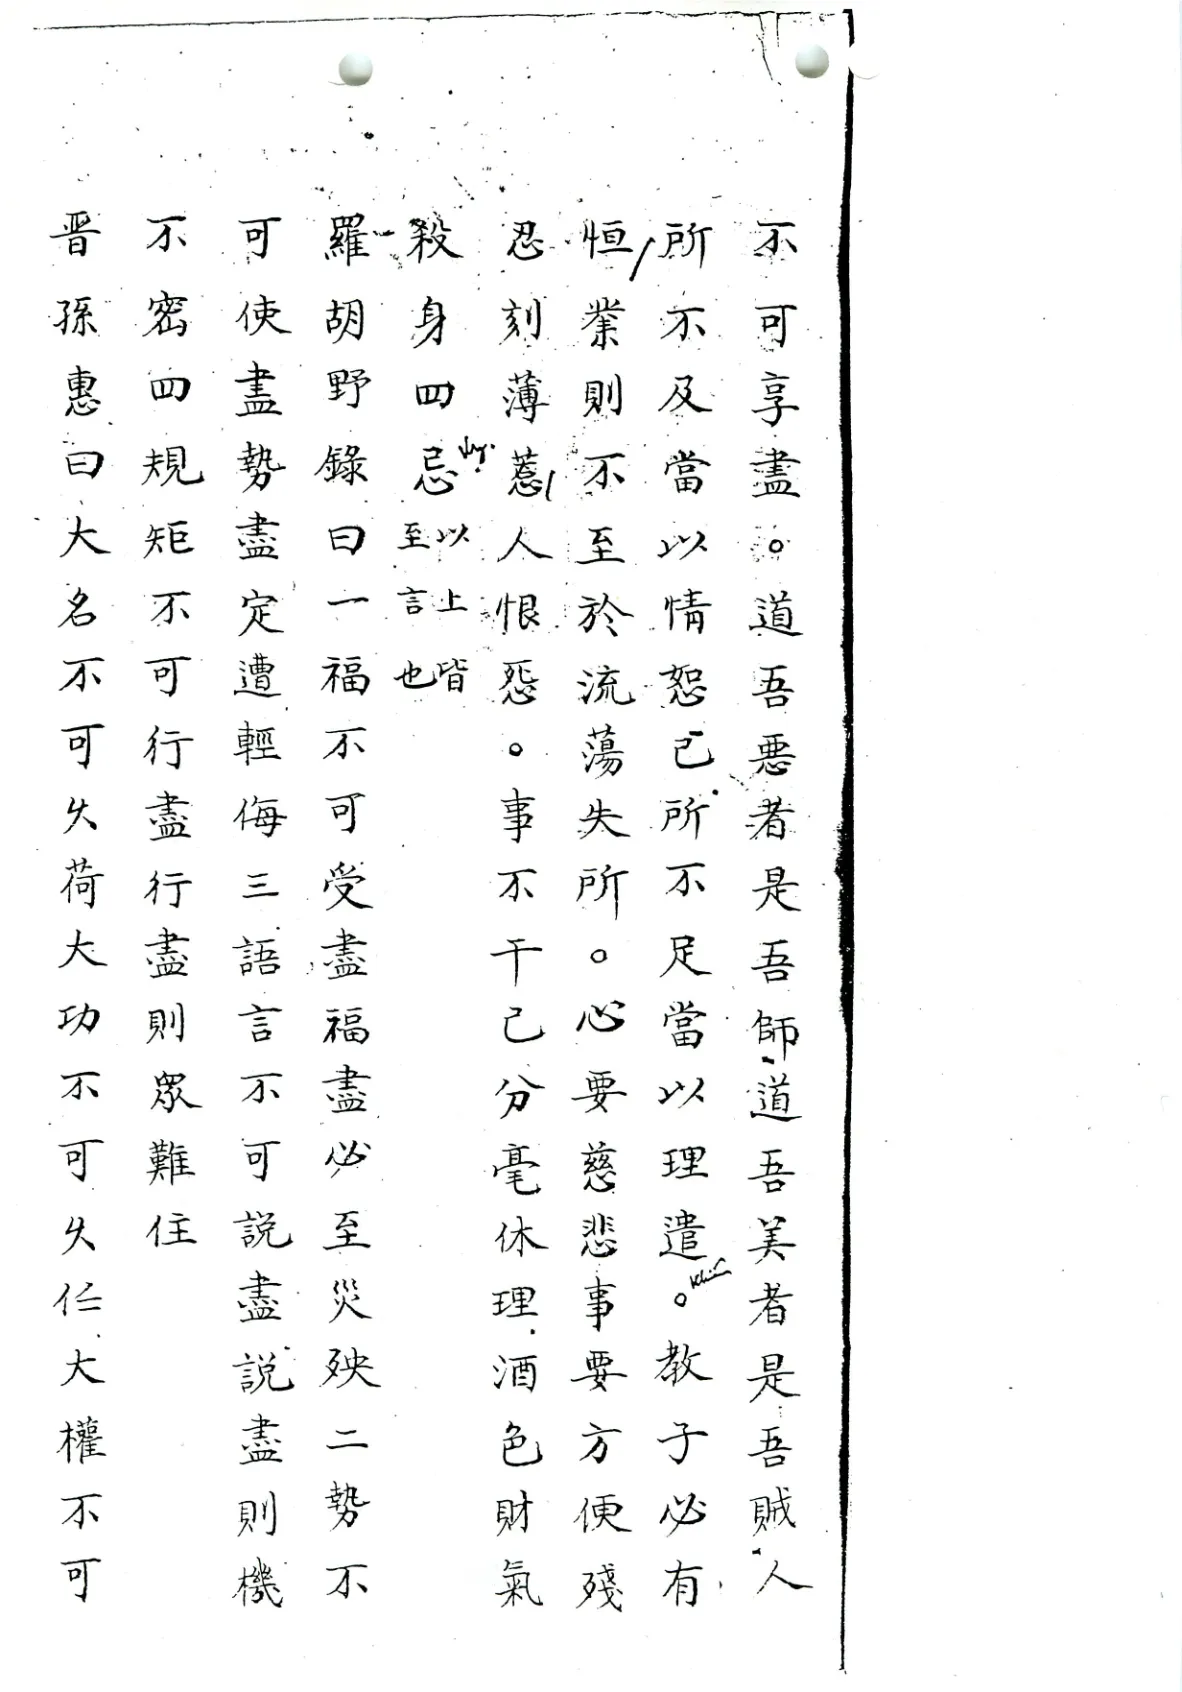 不可享盡。道吾惡者是吾師道吾美者是吾賊人
所不及當以情恕己所不足當以理遣。教子必有
恒業則不至於流蕩失所。心要慈悲事要方便殘
忍刻薄惹人恨怨。事不干己分毫休理酒色財氣
殺身四忌以上皆至言也
羅胡野錄曰一福不可受盡福盡必至災殃二勢不
可使盡勢盡定遭輕侮三語言不可說盡說盡則機
不密四規矩不可行盡行盡則眾難住
晋孫惠曰大名不可久荷大功不可久任大權不可